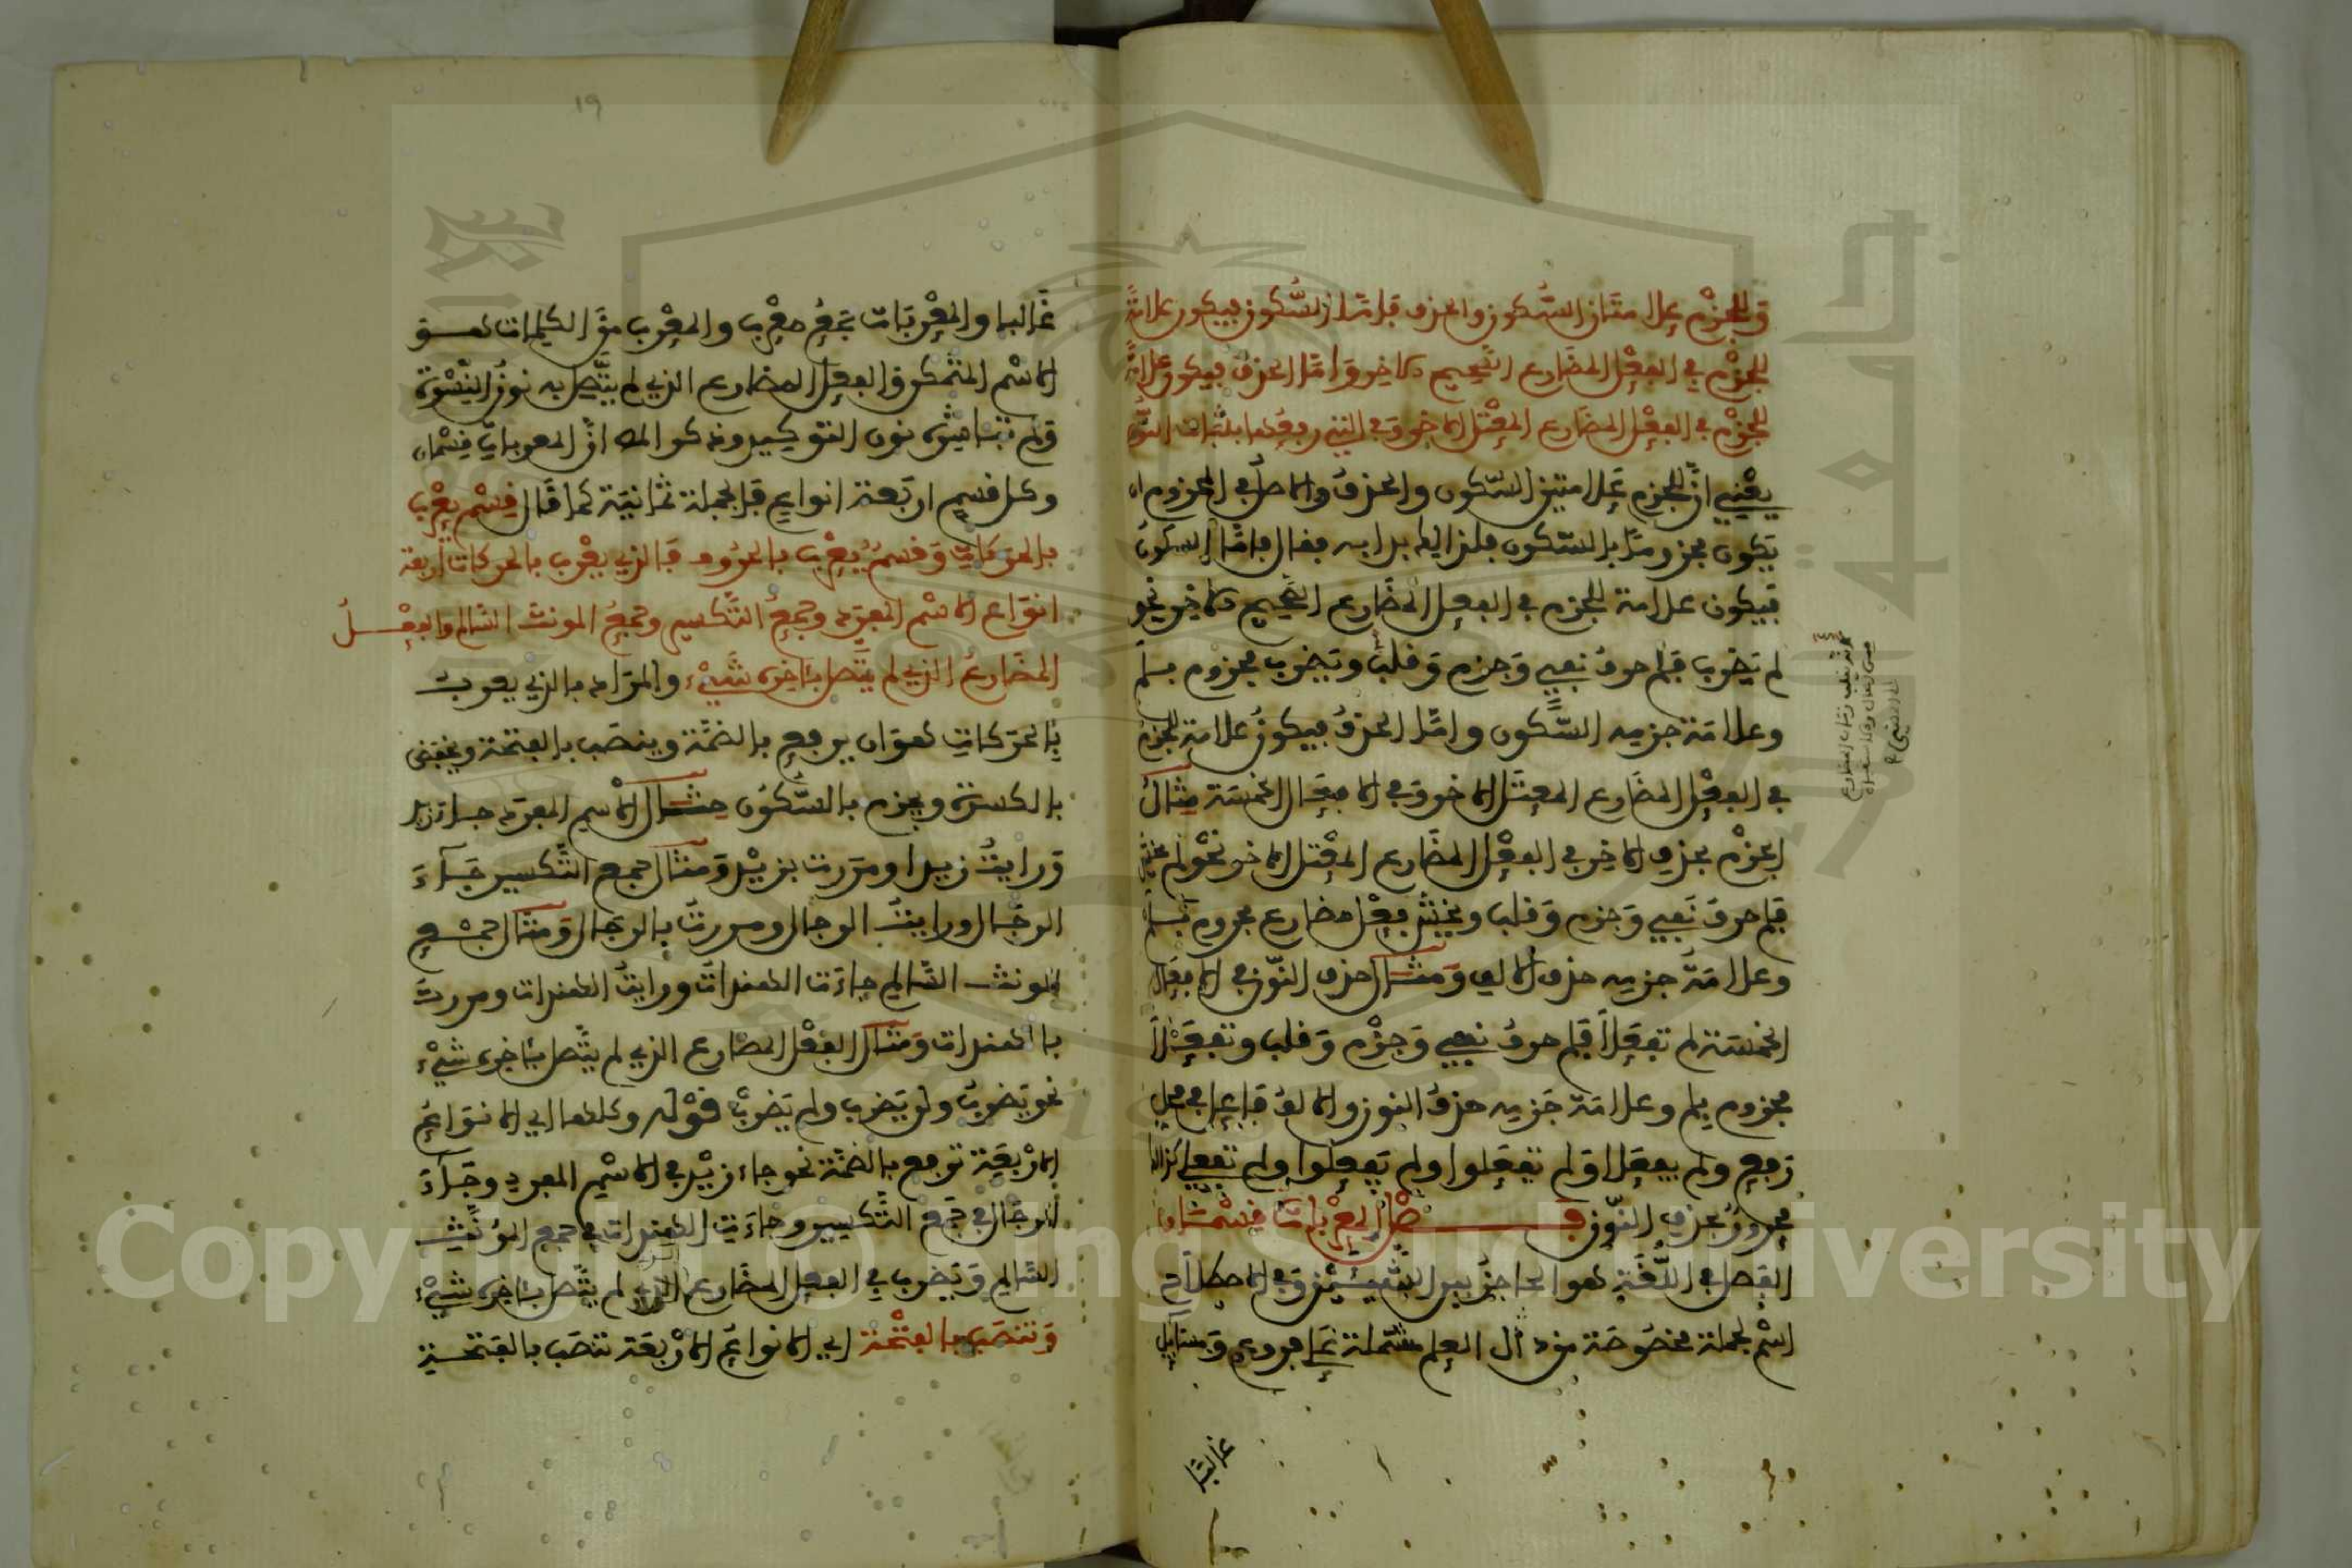 وللجزم علامتان السكون والحذف فاما السكون فيكون علامة
للجزم في الفعل المضارع الصحيح الاخر واما الحذف فيكون علامة
للجزم في الفعل المضارع المعتل الاخر وفي التي رفعها بثبات النون
يعني ان للجزم علامتين السكون والحذف والاصل في المجزوم ان
يكون مجزوما بالسكون فلذالك بدا به فقال فاما السكون
فيكون علامة للجزم في الفعل المضارع الصحيح الاخر نحو
لم يضرب فلم حرف نفي وجزم وقلب ويضرب مجزوم بلم
وعلامة جزمه السكون واما الحذف فيكون علامة للجزم
في الفعل المضارع المعتل الاخر وفي الافعال الخمسة مثال
الجزم بحذف الاخر في الفعل المضارع المعتل الاخر نحو لم يخش
فلم حرف نفي وجزم وقلب ويخش فعل مضارع مجزوم بلم
وعلامة جزمه حذف الالف ومثال حذف النون في الافعال
الخمسة لم تفعلا فلم حرف نفي وجزم وقلب وتفعلا
مجزوم بلم وعلامة جزمه حذف النون والالف فاعل في محل
رفع ولم يفعلا ولم تفعلوا ولم يفعلوا ولم تفعلي كذالك
مجزوم بحذف النون فصل المعربات قسمان
الفصل في اللغة هو الحاجز بين الشيئين وفي الاصطلاح
اسم لجملة مخصوصة من العلم مشتملة على فروع ومسائل
غالبا
١٩
غالبا والمعربات جمع معرب والمعرب من الكلمات هو
الاسم المتمكن والفعل المضارع الذي لم يتصل به نون النسوة
ولم تباشره نون التوكيد وذكر ان المعربات قسمان
وكل قسم اربعة انواع فالجملة ثمانية كما قال قسم يعرب
بالحركات وقسم يعرب بالحروف فالذي يعرب بالحركات اربعة
انواع الاسم المفرد وجمع التكسير وجمع المونث السالم والفعل
المضارع الذي لم يتصل باخره شيء والمراد بالذي يعرب
بالحركات هو ان يرفع بالضمة وينصب بالفتحة ويخفض
بالكسرة ويجزم بالسكون مثال الاسم المفرد جا زيد
ورايت زيدا ومررت بزيد ومثال جمع التكسير جاء
الرجال ورايت الرجال ومررت بالرجال ومثال جمع
المونث السالم جاءت الهندات ورايت الهندات ومررت
بالهندات ومثال الفعل المضارع الذي لم يتصل باخره شيء
نحو يضرب ولن يضرب ولم يضرب قوله وكلها اي الانواع
الاربعة ترفع بالضمة نحو جاء زيد في الاسم المفرد وجاء
الرجال في جمع التكسير وجاءت الهندات في جمع المؤنث
السالم ويضرب في الفعل المضارع الذي لم يتصل باخره شيء
وتنصب بالفتحة اي الانواع الاربعة تنصب بالفتحة
Copyright © King Saud University